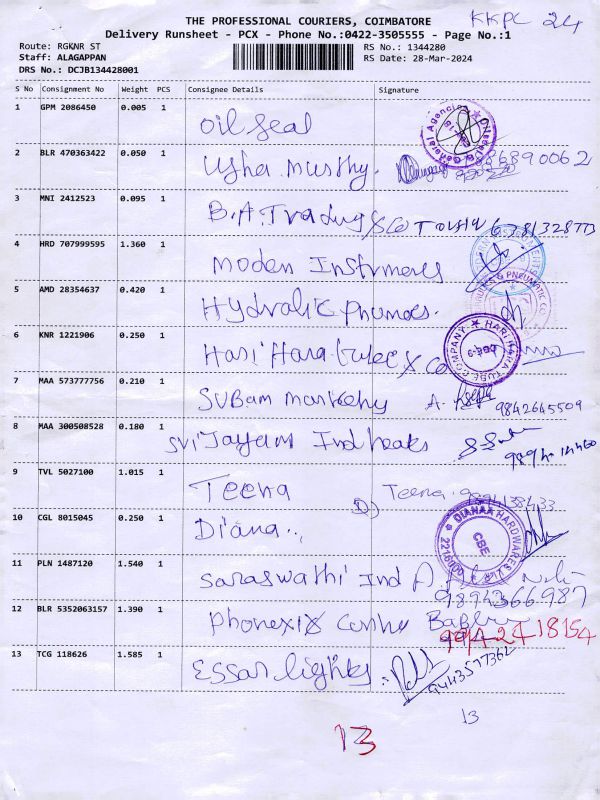 THE PROFESSIONAL COURIERS, COIMBATORE KKPC 24
Delivery Runsheet - PCX - Phone No.:0422-3505555 - Page No.:1
Route: RGKNR ST RS No.: 1344280
Staff: ALAGAPPAN RS Date: 28-Mar-2024
DRS No.: DCJB134428001
S No Consignment No Weight PCS Consignee Details Signature
1 GPM 2086450 0.005 1 oil seal
2 BLR 470363422 0.050 1 Usha Murthy.
3 MNI 2412523 0.095 1 B.A. Trading & Co 6381328773
4 HRD 707999595 1.360 1 Moden Instrments
5 AMD 28354637 0.420 1 Hydralic phumacs.
6 KNR 1221906 0.250 1 Hari Hara tube & Co
HARI HARA TUBE COMPANY CBE-9
7 MAA 573777756 0.210 1 SUBam markehy A. 9842645509
8 MAA 300508528 0.180 1 Sri Jayam Ind
9 TVL 5027100 1.015 1 Teena Teena
10 CGL 8015045 0.250 1 Diana..
DIANAA HARDWARES CBE
11 PLN 1487120 1.540 1 Saraswathi Ind 9894366987
12 BLR 5352063157 1.390 1 phonexix Centre
13 TCG 118626 1.585 1 Essar lights 9443577362
13
13